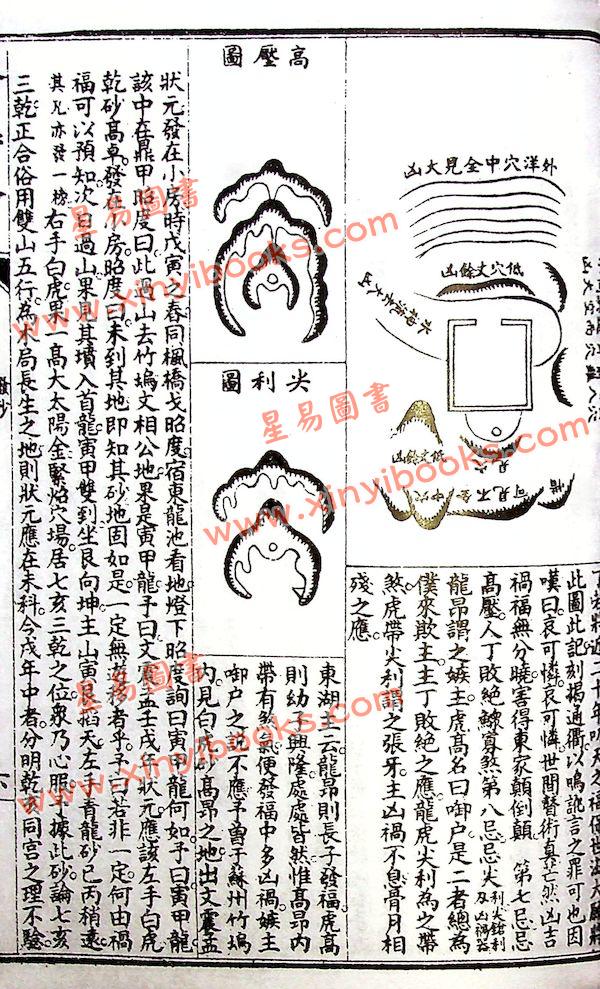 外洋穴中全見大凶
低穴丈餘凶
低穴丈餘凶
此圖此記刻揭通衢以鳴訛言之罪可也因
嘆曰哀可憐哀可憐世間瞽術真茫然凶吉
禍福無分曉害得東家顛倒顛　第七忌忌
高壓人丁敗絕鰥寡煞第八忌忌尖
龍昂謂之嫉主虎高名曰啣户是二者總為
僕來欺主主丁敗絕之應龍虎尖利為之帶
煞虎帶尖利謂之張牙主凶禍不息骨月相
殘之應
高壓圖
尖利圖
東湖主云龍昂則長子發福虎高
則幼子興隆處處皆然惟高昂内
帶有煞氣便發福中多凶禍嫉主
啣户之説不應予曽于蘇州竹塢
内見白虎砂高昂之地出文震孟
狀元發在小房時戊寅之春同楓橋戈昭度宿東龍池看地燈下昭度詢曰寅甲龍何如予曰寅甲龍
該中在鼎甲昭度曰此過山去竹塢文相公地果是寅甲龍予曰文震孟壬戌年狀元應該左手白虎
乾砂高卓發在小房昭度曰未到其地即知其砂地因如是一定無遊移者乎予曰若非一定何由禍
福可以預知次日過山果見其墳入首龍寅甲雙到坐艮向坤主山寅艮天左手青龍砂巳丙稍遠
其亦發一榜右手白虎第一高大太陽金緊焰穴場居七亥三乾之位衆乃心服予據此砂論七亥
三乾正合俗用雙山五行為木局長生之地則狀元應在未科今戌年中者分明乾亥同宮之理不驗
星易圖書
www.xinyibooks.com
星易圖書
www.xinyibooks.com